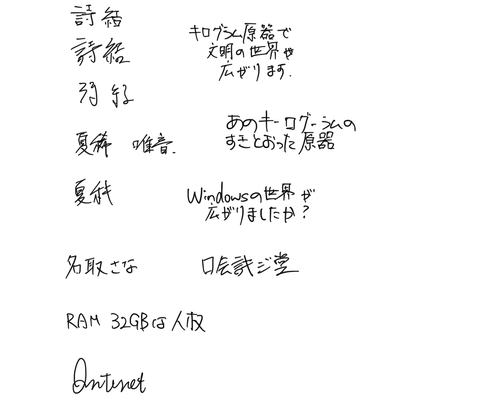 詩絽
詩絽
キログラム原器で
文明の世界や
広がります.
夏稀 唯音.
あのキーログーラムの
すきとおった原器
夏秋
Windowsの世界が
広がりましたか?
名取さな
RAM 32GBは人权
Internet